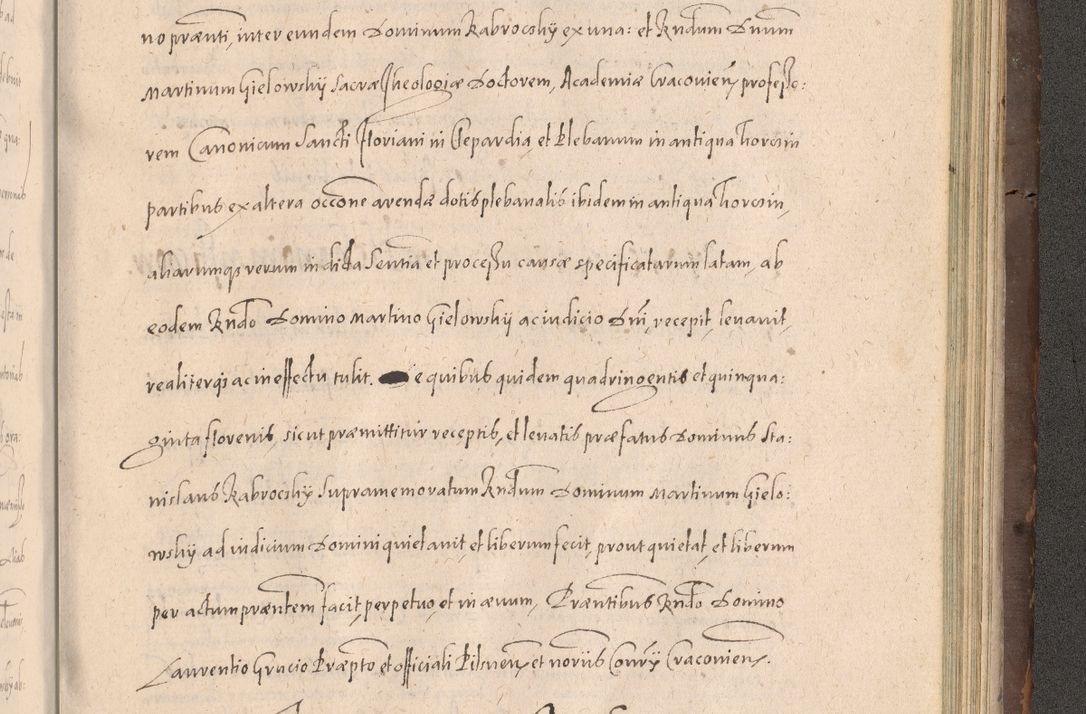 no prænti, inter eundem Dominum Kabrocohÿ ex una: et Rndum Dnum
Martinum Gielowskÿ Sacræ Theologiæ Doctorem, Academiæ Cracovien, professo:
rem Canonicum Sancti Floriani in Clepardia, et Plebanum in antiqua
partibus ex altera occone arendæ dotis plebanalis ibidem in antiqua
aliarumq; rerum in dicta Sentia et processu causæ specificatarum latam, ab
eodem Rndo Domino Martino Gielowskÿ ac iudicio Dni, recepit, levavit,
realiterq; ac in effectu tulit. e quibus quidem quadringentis et quinqua:
ginta florenis, sicut præmittitur receptis, et levatis præfatus Dominus Sta:
nislaus Supramemoratum Rndum Dominum Martinum Gielo:
wskÿ ad iudicium Domini quietavit et liberum fecit, prout quietat, et liberum
per actum præntem facit, perpetuo, et in ævum, Præntibus Rndo Domino
Laurentio Grucio Præpto et officiali Pilsnen, et noriis Conrÿ Cracovien.